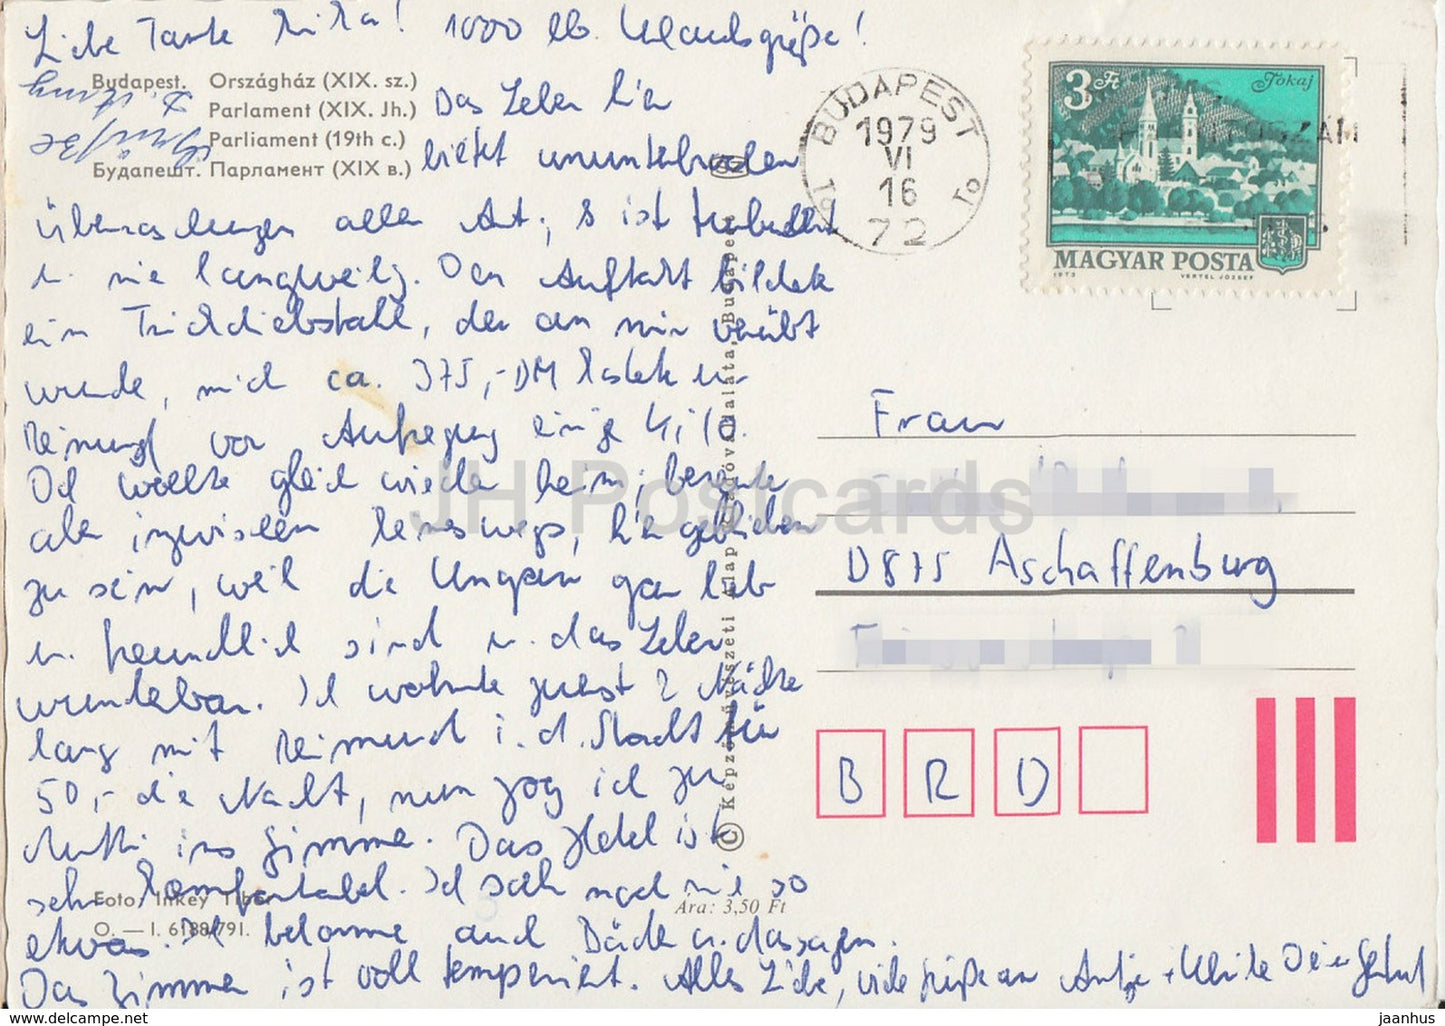 Liebe Tante Rita! 1000 lb. Urlaubsgrüße!
Budapest. Országház (XIX. sz.)
Parlament (XIX. Jh.)
Parliament (19th c.)
Будапешт. Парламент (XIX в.)
Das Leben hier
bietet ununterbrochen
Überraschungen aller Art; s ist turbulent
u. nie langweilig. Den Auftakt bildete
ein Trickdiebstahl, der an mir verübt
wurde, mich ca. 375,-DM kostete u.
Reimund vor Aufregung einige Kilo.
Ich wollte gleich wieder heim; bereute
aber inzwischen keineswegs, hier geblieben
zu sein, weil die Ungarn gar lieb
u. freundlich sind u. das Leben
wunderbar. Ich wohnte zuerst 2 Nächte
lang mit Reimund i. d. Stadt für
50,- die Nacht, nun zog ich zu
Mutti ins Zimmer. Das Hotel ist
sehr komfortabel. Ich sah noch nie so
etwas. Ich bekomme auch Bäder u. Massagen.
Das Zimmer ist voll temperiert. Alles Liebe, viele Grüße an Antje + Ulrike Deine
Foto: Inkey Tibor
O. — I. 6188/791.
Ára: 3,50 Ft
© Képzőművészeti Alap Kiadóvállalata, Budapest
BUDAPEST
1979
VI
16
72
3 Ft
Tokaj
MAGYAR POSTA
1973 VERTEL JÓZSEF
Frau
D 875 Aschaffenburg
B R D
JH Postcards
www.delcampe.net
jaanhus